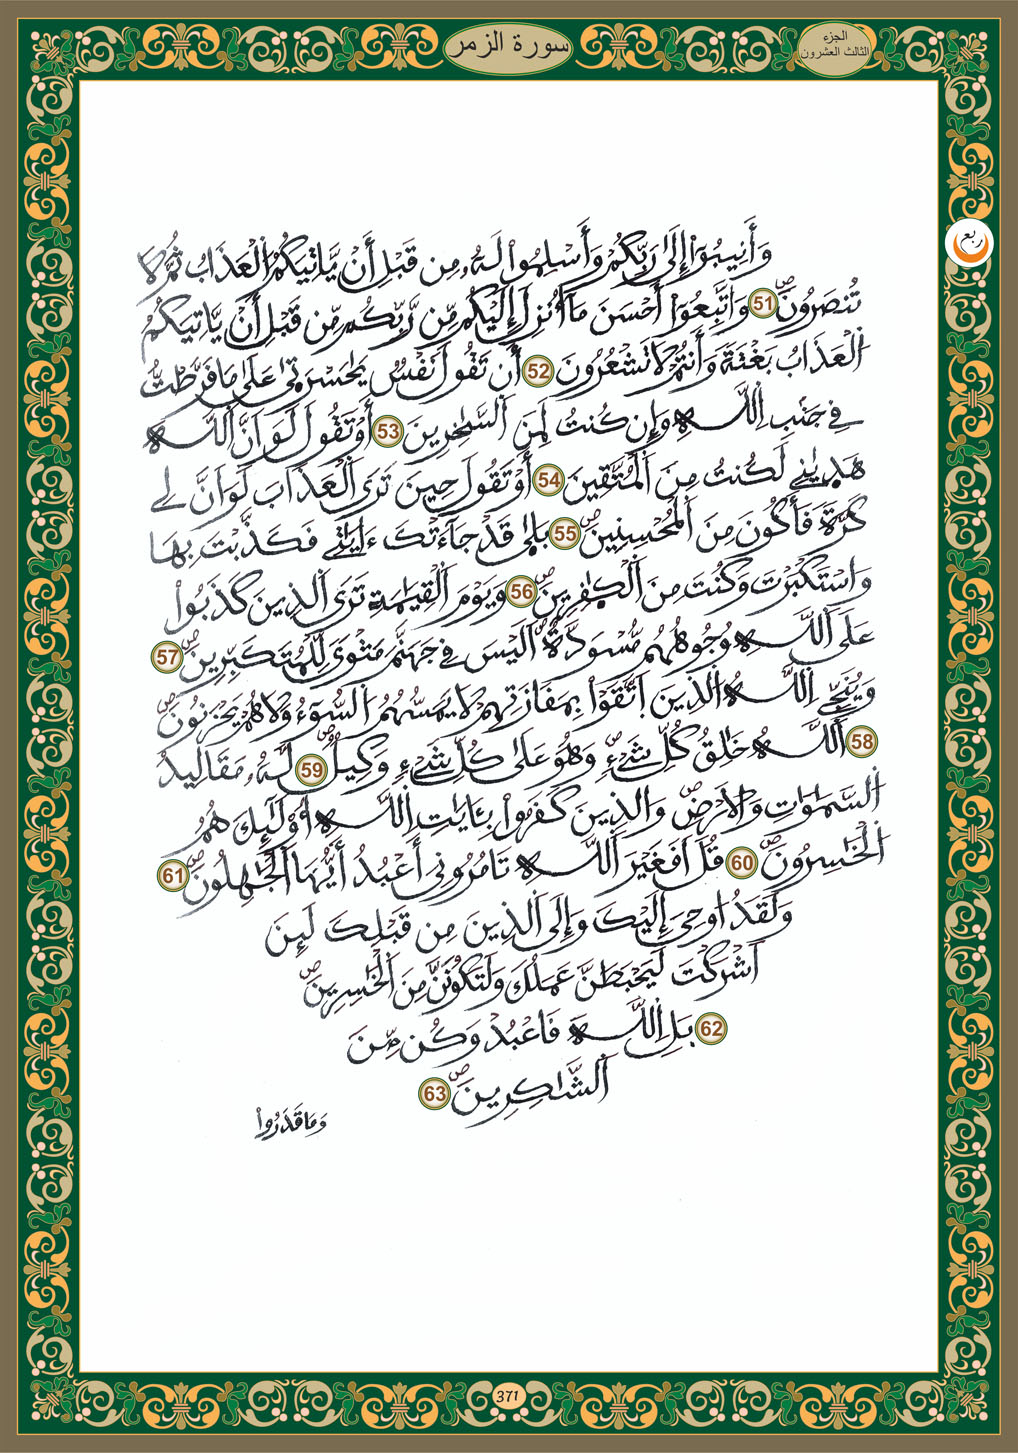 سورة الزمر
الجزء
الثالث العشرون
ربع
وَأَنِيبُوٓاْ إِلَىٰ رَبِّكُمْ وَأَسْلِمُواْ لَهُۥ مِن قَبْلِ أَنْ يَّاتِيَكُمُ اُلْعَذَابُ ثُمَّ لَا
تُنصَرُونَۖ 51 وَاتَّبِعُوٓاْ أَحْسَنَ مَآ أُنزِلَ إِلَيْكُم مِّن رَّبِّكُم مِّن قَبْلِ أَنْ يَّاتِيَكُمُ
اُلْعَذَابُ بَغْتَةً وَأَنتُمْ لَا تَشْعُرُونَ 52 أَن تَقُولَ نَفْسٌ يَٰحَسْرَتَىٰ عَلَىٰ مَا فَرَّطتُّ
فِے جَنۢبِ اِللَّهِ وَإِن كُنتُ لَمِنَ اَلسَّٰخِرِينَ 53 أَوْ تَقُولَ لَوَ اَنَّ اَللَّهَ
هَدَىٰنِے لَكُنتُ مِنَ اَلْمُتَّقِينَ 54 أَوْ تَقُولَ حِينَ تَرَى اَلْعَذَابَ لَوَ اَنَّ لِے
كَرَّةً فَأَكُونَ مِنَ اَلْمُحْسِنِينَۖ 55 بَلَىٰ قَدْ جَآءَتْكَ ءَايَٰتِے فَكَذَّبْتَ بِهَا
وَاسْتَكْبَرْتَ وَكُنتَ مِنَ اَلْكَٰفِرِينَۖ 56 وَيَوْمَ اَلْقِيَٰمَةِ تَرَى اَلذِينَ كَذَبُواْ
عَلَى اَللَّهِ وُجُوهُهُم مُّسْوَدَّةٌۖ اَلَيْسَ فِے جَهَنَّمَ مَثْوىً لِّلْمُتَكَبِّرِينَۖ 57
وَيُنَجِّے اِللَّهُ اُلذِينَ اَتَّقَوْاْ بِمَفَازَتِهِمْ لَا يَمَسُّهُمُ اُلسُّوٓءُ وَلَا هُمْ يَحْزَنُونَۖ
58 اَللَّهُ خَٰلِقُ كُلِّ شَےْءٖ وَهُوَ عَلَىٰ كُلِّ شَےْءٖ وَكِيلٌۖ 59 لَّهُۥ مَقَالِيدُ
اُلسَّمَٰوَٰتِ وَالَارْضِۖ وَالذِينَ كَفَرُواْ بِـَٔايَٰتِ اِللَّهِ أُوْلَٰٓئِكَ هُمُ
اُلْخَٰسِرُونَۖ 60 قُلَ اَفَغَيْرَ اَللَّهِ تَامُرُونِيَ أَعْبُدُ أَيُّهَا اَلْجَٰهِلُونَۖ 61
وَلَقَدُ ا۟وحِيَ إِلَيْكَ وَإِلَى اَلذِينَ مِن قَبْلِكَ لَئِنَ
اَشْرَكْتَ لَيَحْبَطَنَّ عَمَلُكَ وَلَتَكُونَنَّ مِنَ اَلْخَٰسِرِينَۖ
62 بَلِ اِللَّهَ فَاعْبُدْ وَكُن مِّنَ
اَلشَّٰكِرِينَۖ 63
وَمَا قَدَرُواْ
371